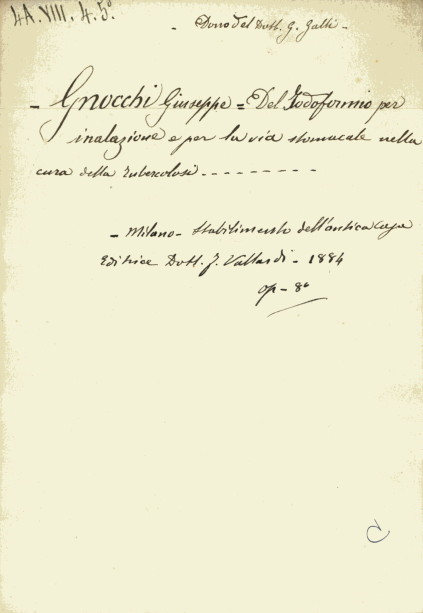 4A.VIII. 4. 5°.
- Dono del Dott. G. Galli -
- Gnocchi Giuseppe = Del Jodoformio per
inalazione e per la via stomacale nella
cura della tubercolosi - - - - - - - - -
- Milano - Stabilimento dell'antica Casa
Editrice Dott. F. Vallardi - 1884
op - 8°
C